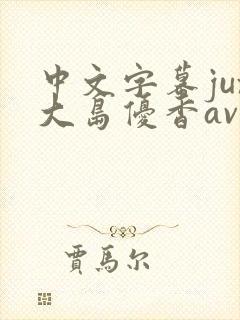 中文字幕ju
大島優香av
賈馬尔